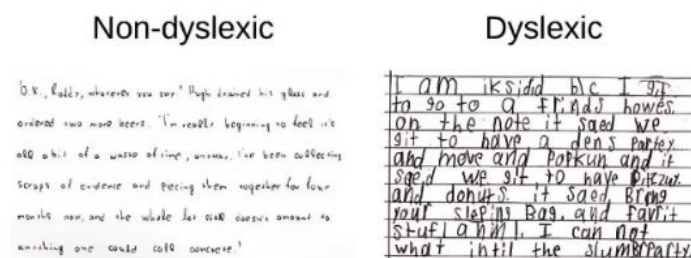 Non-dyslexic
Dyslexic
O.K., Roddy, whatever you say.' Hugh drained his glass and
ordered two more beers. 'I'm really beginning to feel it's
all a bit of a waste of time, anyway. I've been collecting
scraps of evidence and piecing them together for four
months now, and the whole lot still doesn't amount to
anything one could call concrete.'
I am iksidid b/c I git
to go to a frinds howes.
on the note it saed we
git to have a dens partey
and move and Popkun and it
saeid we git to have Pitzuy.
and donuts. it saed Bring
your sleping Bag, and favrit
stuf anml. I can not
what intil the slumbrparty